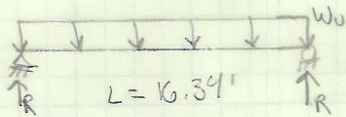 Wu
R L = 16.34' R